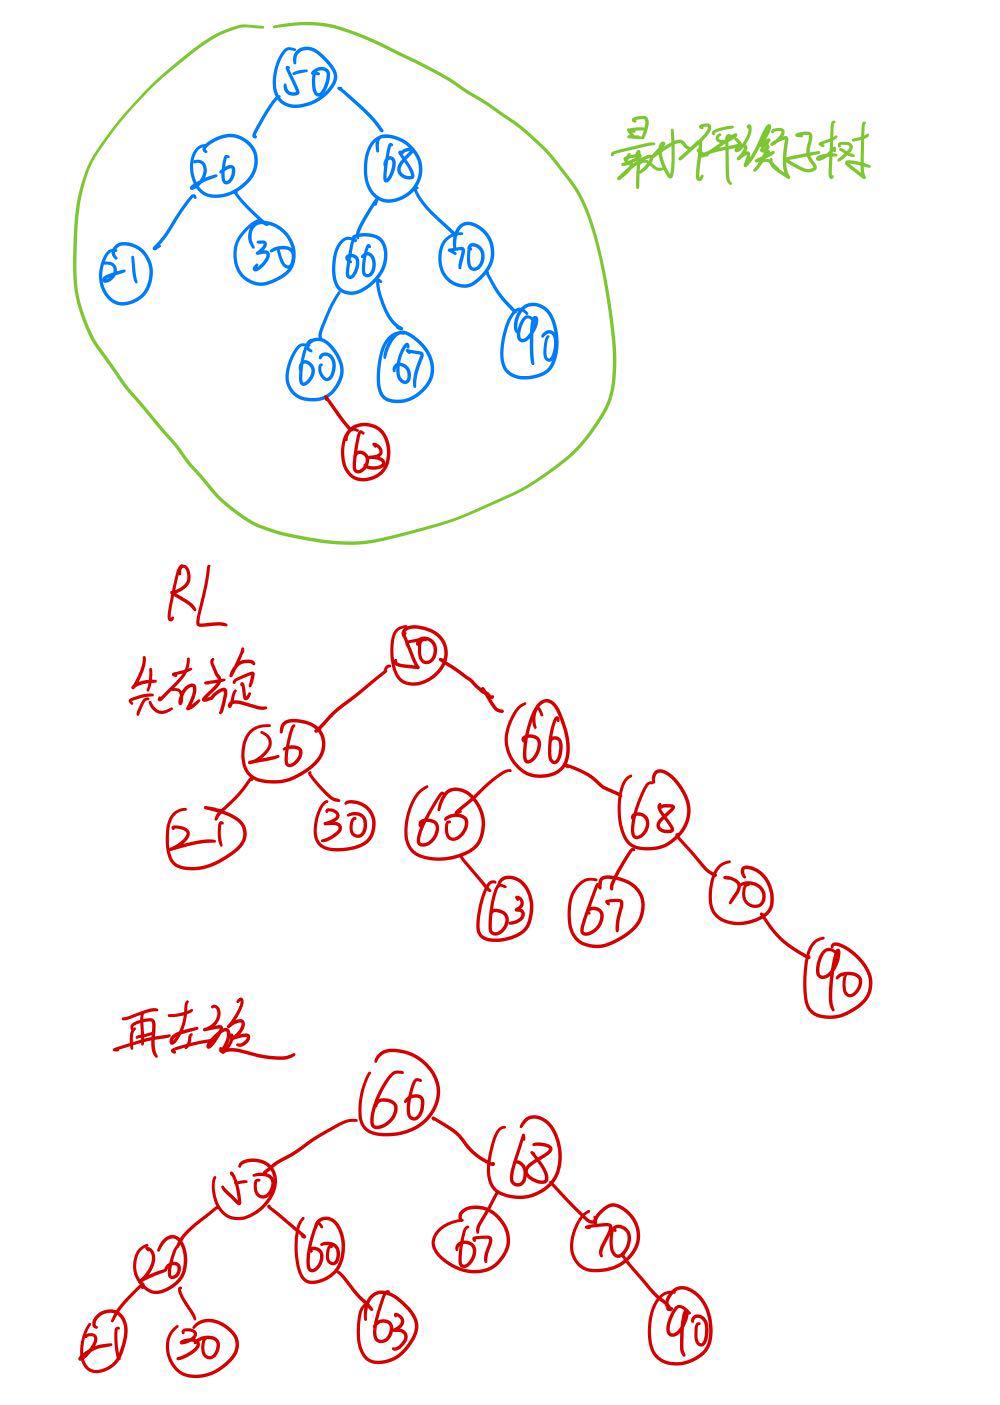 50
最小不平衡子树
26 68
21 30 66 70
60 67 90
63
RL
先右旋
50
26 66
21 30 60 68
63 67 70
90
再左旋
66
50 68
26 60 67 70
21 30 63 90